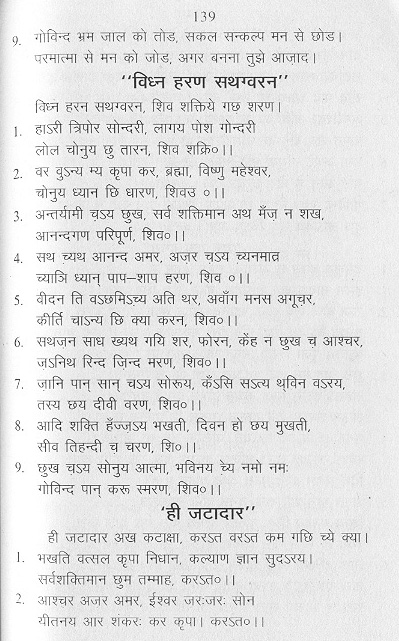 139
9. गोविन्द भ्रम जाल को तोड, सकल सन्कल्प मन से छोड।
परमात्मा से मन को जोड, अगर बनना तुझे आज़ाद।
“विध्न हरण सथग्वरन”
विध्न हरन सथग्वरन, शिव शक्तिये गछ शरण।
1. हाऽरी त्रिपोर सोन्दरी, लागय पोश गोन्दरी
लोल चोनुय छु तारन, शिव शक्रि०।।
2. वर वुऽन्य म्य कृपा कर, ब्रह्मा, विष्णु महेश्वर,
चोनुय ध्यान छि धारण, शिवउ ०।।
3. अन्तर्यामी च़ऽय छुख, सर्व शक्तिमान अथ मँज़ न शख,
आनन्दगण परिपूर्ण, शिव०।।
4. सथ च्यथ आनन्द अमर, अज़र च़ऽय च्यनमात्र
च्याञि ध्यान् पाप–शाप हरण, शिव ०।।
5. वीदन ति वऽछमिऽच्य अति थर, अवाँग मनस अगूच़र,
कीर्ति चाऽन्य छि क्या करन, शिव०।।
6. सथज़न साध ख्यथ गयि शर, फोरन, केंह न छुख च़ आश्चर,
ज़ऽनिथ रिन्द ज़िन्द मरण, शिव०।।
7. ज़ानि पान् सान् चऽय सोरूय, कँऽसि सऽत्य थ्विन वऽरय,
तस्य छय दीवी वरण, शिव०।।
8. आदि शक्ति हँज्ज़ऽय भखती, दिवन हो छय मुखती,
सीव तिहन्दी च़ चरण, शि०।।
9. छुख च़ऽय सोनुय आत्मा, भविनय च्ये नमो नमः
गोविन्द पान् करू स्मरण, शिव०।।
‘ही जटादार’’
ही जटादार अख कटाक्षा, करऽत वरऽत कम गछि च्ये क्या।
1. भखति वत्सल कृपा निधान, कल्याण ज्ञान सुदऽरय।
सर्वशक्तिमान छुम तम्माह, करऽत०।।
2. आश्चर अजर अमर, ईश्वर जरःजरः सोन
यीतनय आर शंकरः कर कृपा। करऽत०।।